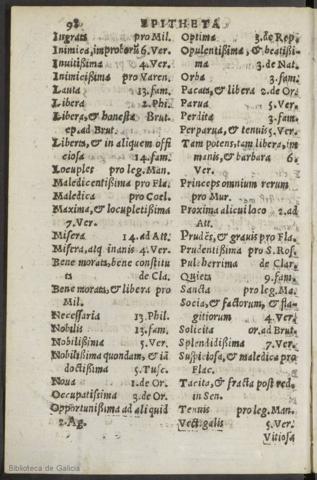 98 EPITHETA
Ingrata pro Mil.
Inimica, improborũ 6. Ver.
Inuitißima 4. Ver.
Inimicißima pro Varen.
Lauta 13. fam.
Libera 2. Phi.
Libera, & honesta Brut.
ep. ad Brut.
Liberis, & in aliquem offi
ciosa 14. fam.
Locuples pro leg. Man.
Maledicentißima pro Fla.
Maledica pro Coel.
Maxima, & locupletißima
7. Ver.
Misera 14. ad Att.
Misera, atq inanis 4. Ver.
Bene morats, bene constitu
ts de Cla.
Bene morats, & libera pro
Mil.
Necessaria 13. Phil.
Nobilis 13. fam.
Nobilißima 5. Ver.
Nobilißima quondam, & iã
doctißima 5. Tusc.
Noua 1. de Or.
Occupatißima 3. de Or.
Opportunißima ad aliquid
2. Ag.
Optima 3. de Rep.
Opulentißima, & beatißi-
ma 3. de Nat.
Orba 3. fam.
Pacata, & libera 2. de Or.
Parua 5. Ver.
Perdita 3. fam.
Perparua, & tenuis 5. Ver.
Tam potens, tam libera, im
manis, & barbara 6.
Ver.
Princeps omnium rerum
pro Mur.
Proxima alicui loco 2. ad
Att.
Prudẽs, & grauis pro Fla.
Prudentißima pro S. Ros.
Pulcherrima de Clar.
Quieta 9. fam.
Sancta pro leg. Ma.
Socia, & factorum, & fla-
gitiorum 4. Ver.
Solicita or. ad Brut.
Splendidißima 7. Ver.
Suspiciosa, & maledica pro
Flac.
Tacita, & fracta post red.
in Sen.
Tenuis pro leg. Man.
Vectigalis 5. Ver.
Vitiosa
Biblioteca de Galicia